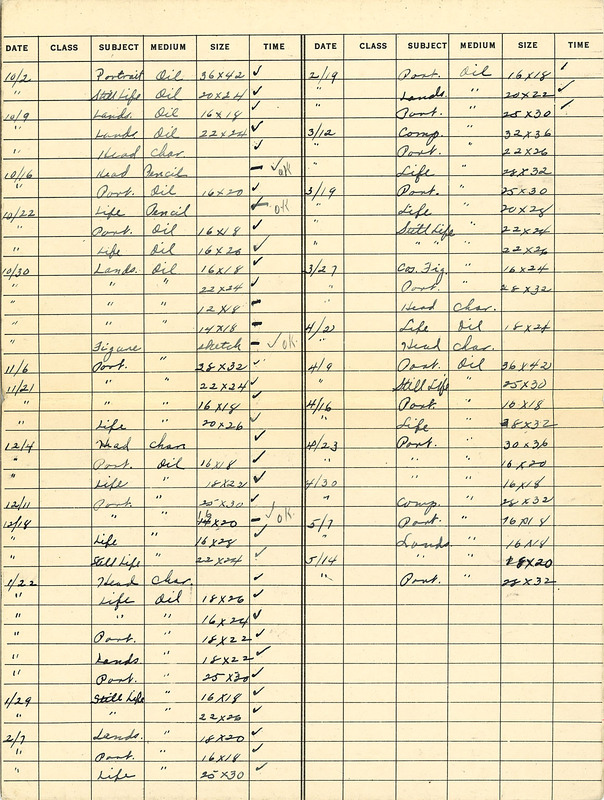 DATE CLASS SUBJECT MEDIUM SIZE TIME
10/2 Portrait Oil 36x42 ✓
" Still Life Oil 20x24 ✓
10/9 Lands. Oil 16x18 ✓
" Lands. Oil 22x24 ✓
" Head Char. ✓
10/16 Head Pencil – ✓ OK
" Port. Oil 16x20 ✓
10/22 Life Pencil OK
" Port. Oil 16x18 ✓
" Life Oil 16x20 ✓
10/30 Lands. Oil 16x18 ✓
" " " 22x24 ✓
" " " 12x18 –
" " " 14x18 –
" Figure sketch – ✓ OK
11/6 Port. " 28x32 ✓
11/21 " " 22x24 ✓
" " " 16x18 ✓
" Life " 20x26 ✓
12/4 Head Char. ✓
" Port. Oil 16x18 ✓
" Life " 18x22 ✓
12/11 Port. " 25x30 ✓
12/18 " " 16x20 – ✓ OK
" Life " 16x28 ✓
" Still Life " 22x24 ✓
1/22 Head Char. ✓
" Life Oil 18x26 ✓
" " " 16x24 ✓
" Port. " 18x22 ✓
" Lands. " 18x22 ✓
" Port. " 25x30 ✓
1/29 Still Life " 16x18 ✓
" " " 22x26 ✓
2/7 Lands. " 18x20 ✓
" Port. " 16x18 ✓
" Life " 25x30 ✓
DATE CLASS SUBJECT MEDIUM SIZE TIME
2/19 Port. Oil 16x18 ✓
" Lands. " 20x22 ✓
" Port. " 25x30 ✓
3/12 Comp. " 32x36
" Port. " 22x26
" Life " 28x32
3/19 Port. " 25x30
" Life " 20x28
" Still Life " 22x24
" " " 22x26
3/27 Cos. Fig. " 16x24
" Port. " 28x32
" Head Char.
4/2 Life Oil 18x24
" Head Char.
4/9 Port. Oil 36x42
" Still Life " 25x30
4/16 Port. " 16x18
" Life " 28x32
4/23 Port. " 30x36
" " " 16x20
4/30 " " 16x18
" Comp. " 28x32
5/7 Port. " 16x18
" Lands " 16x18
5/14 " " 18x20
" Port. " 28x32